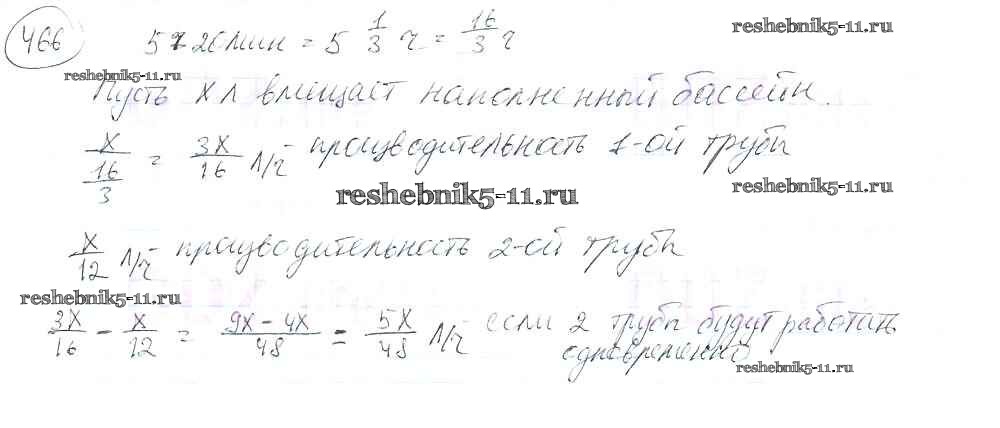 466 5ч 20мин = 5 1/3 ч = 16/3 ч
reshebnik5-11.ru
reshebnik5-11.ru
Пусть x л вмещает наполненный бассейн.
x/(16/3) = 3x/16 л/ч производительность 1-ой трубы
reshebnik5-11.ru
reshebnik5-11.ru
x/12 л/ч производительность 2-ой трубы
reshebnik5-11.ru
3x/16 - x/12 = (9x - 4x)/48 = 5x/48 л/ч если 2 трубы будут работать
одновременно
reshebnik5-11.ru